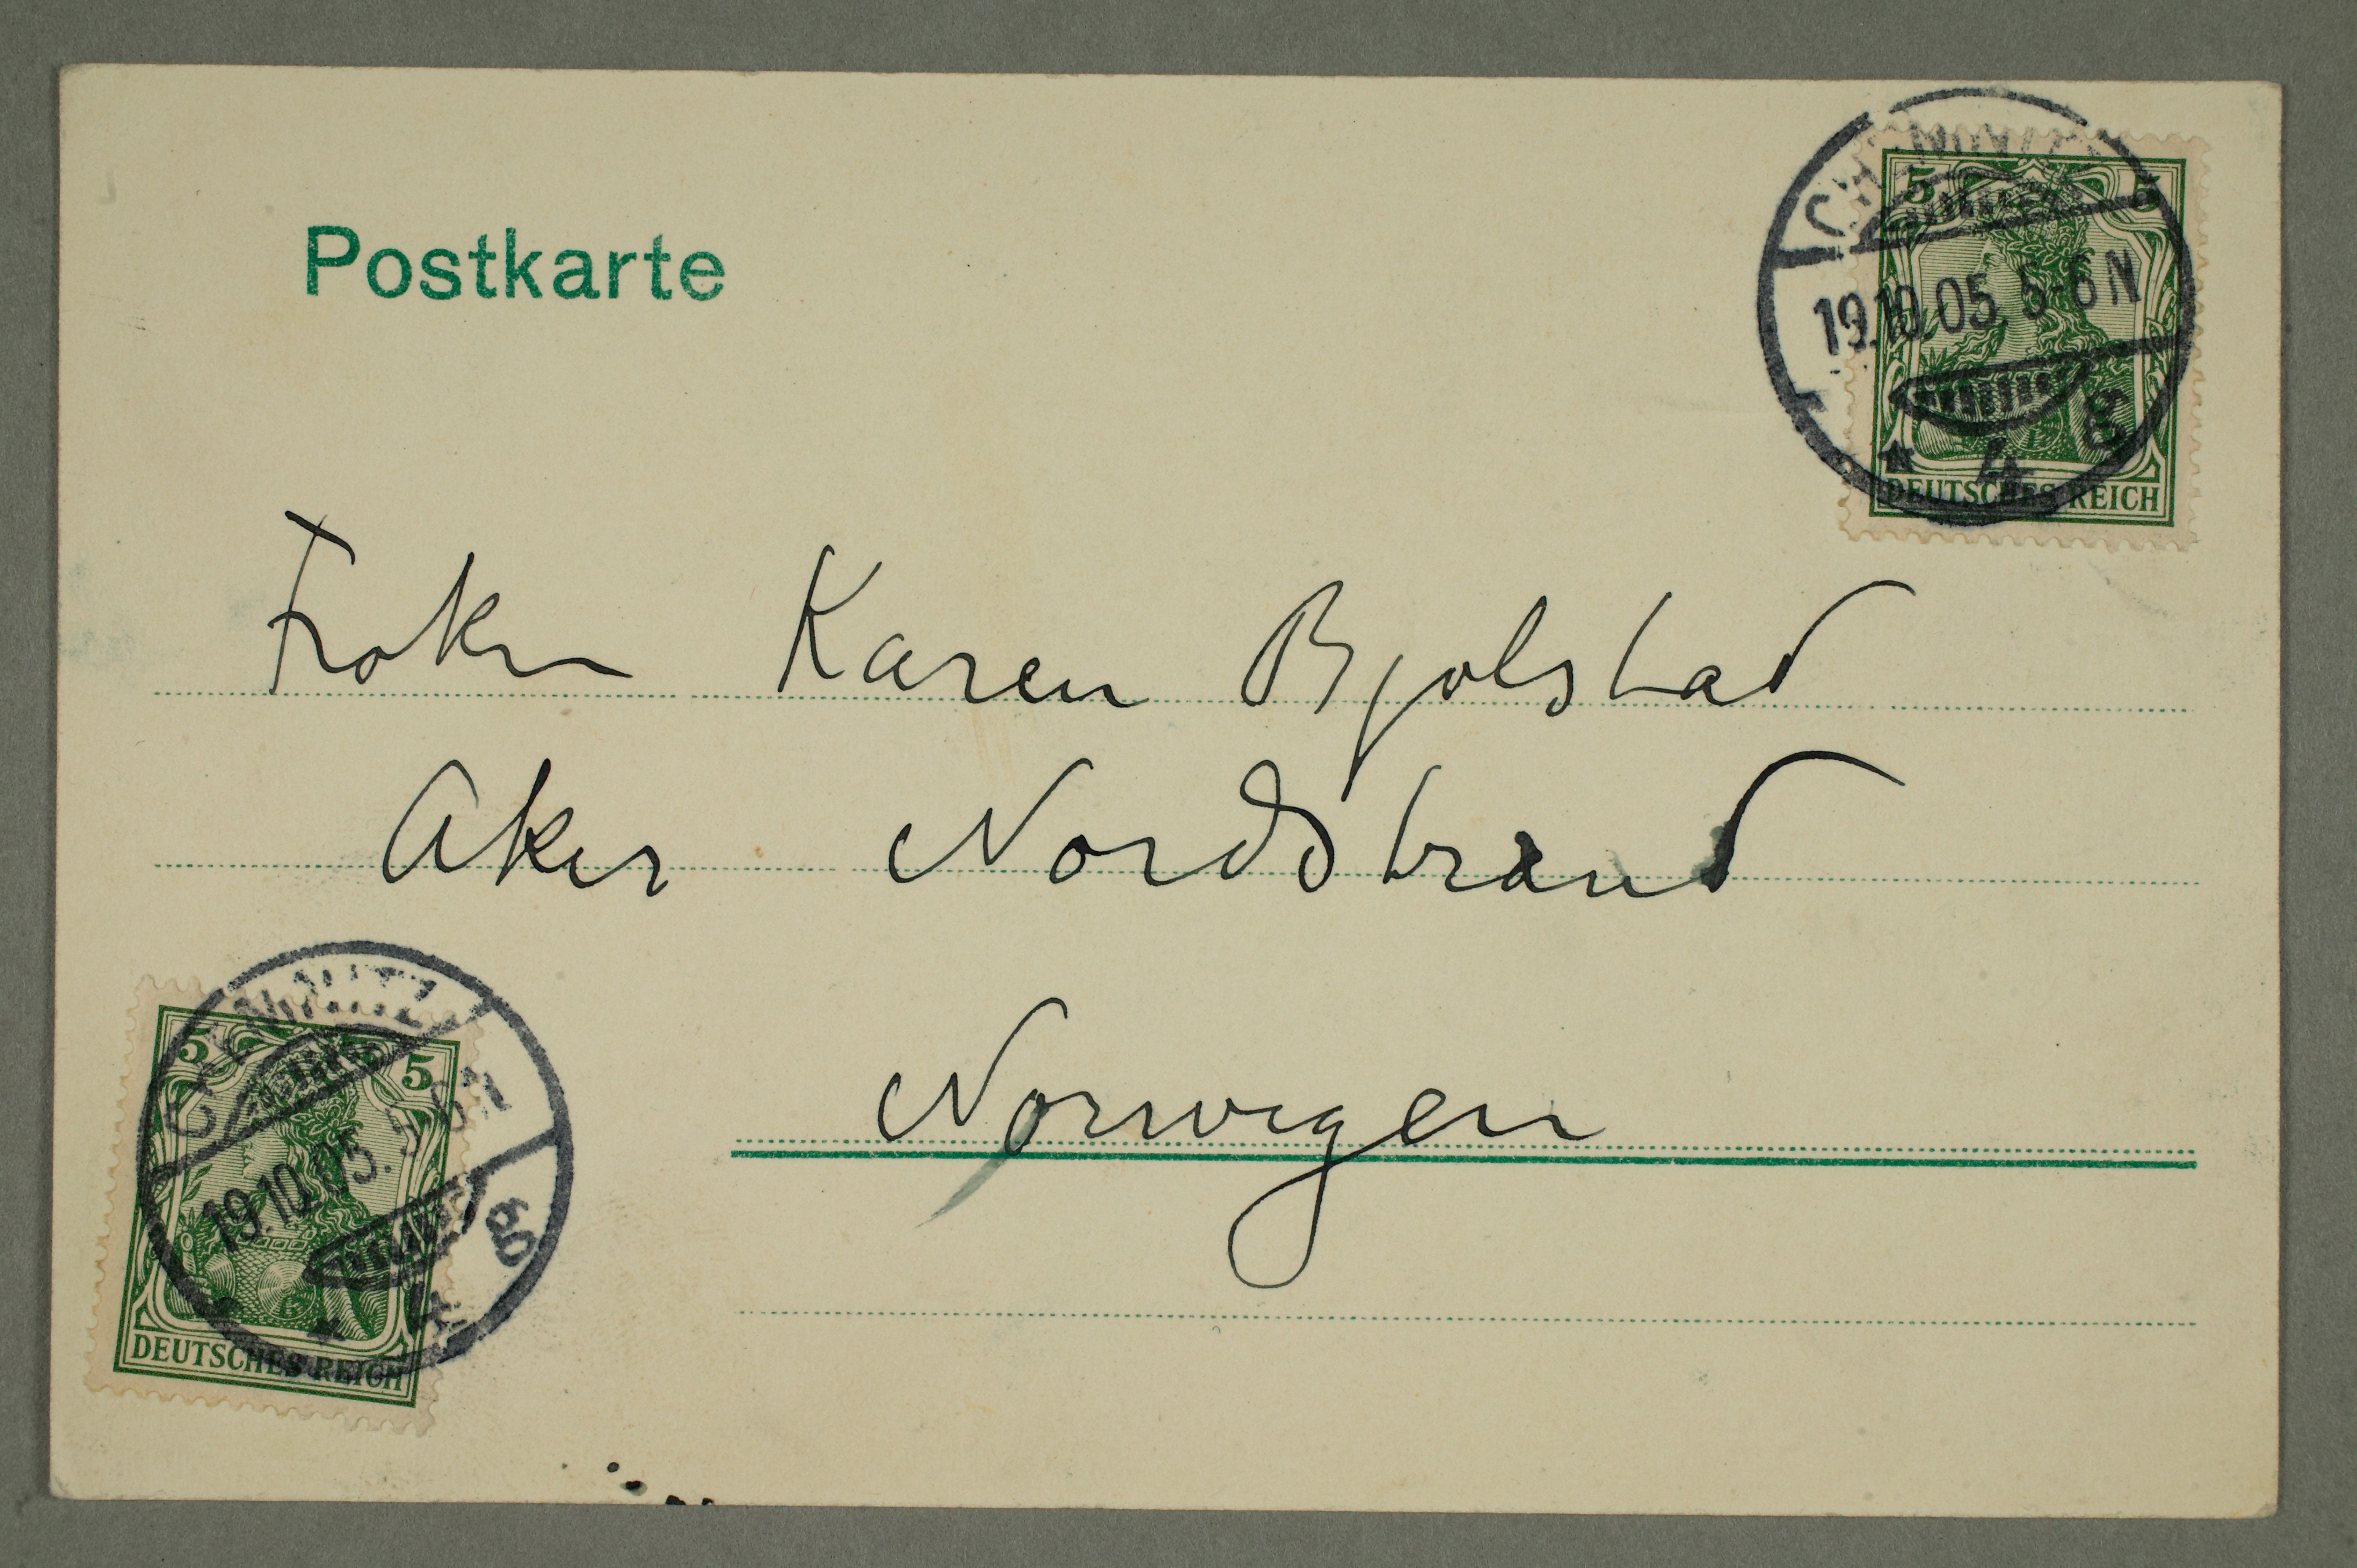 Postkarte
CHEMNITZ
5 5
19.10.05. 5-6N
* 4 g
DEUTSCHES REICH
Frokn Karen Bjolstad
Aker Nordstrand
Norwegen
CHEMNITZ
5 5
19.10.05. 5-6N
* 4 g
DEUTSCHES REICH